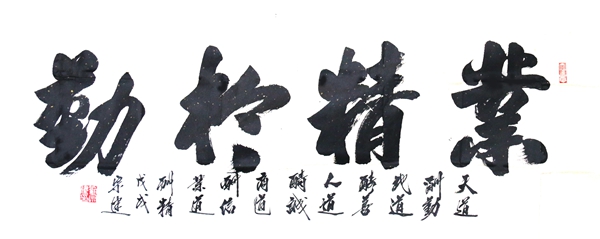 業精於勤
天道
酬勤
地道
酬善
人道
酬誠
商道
酬信
業道
酬精
戊戌